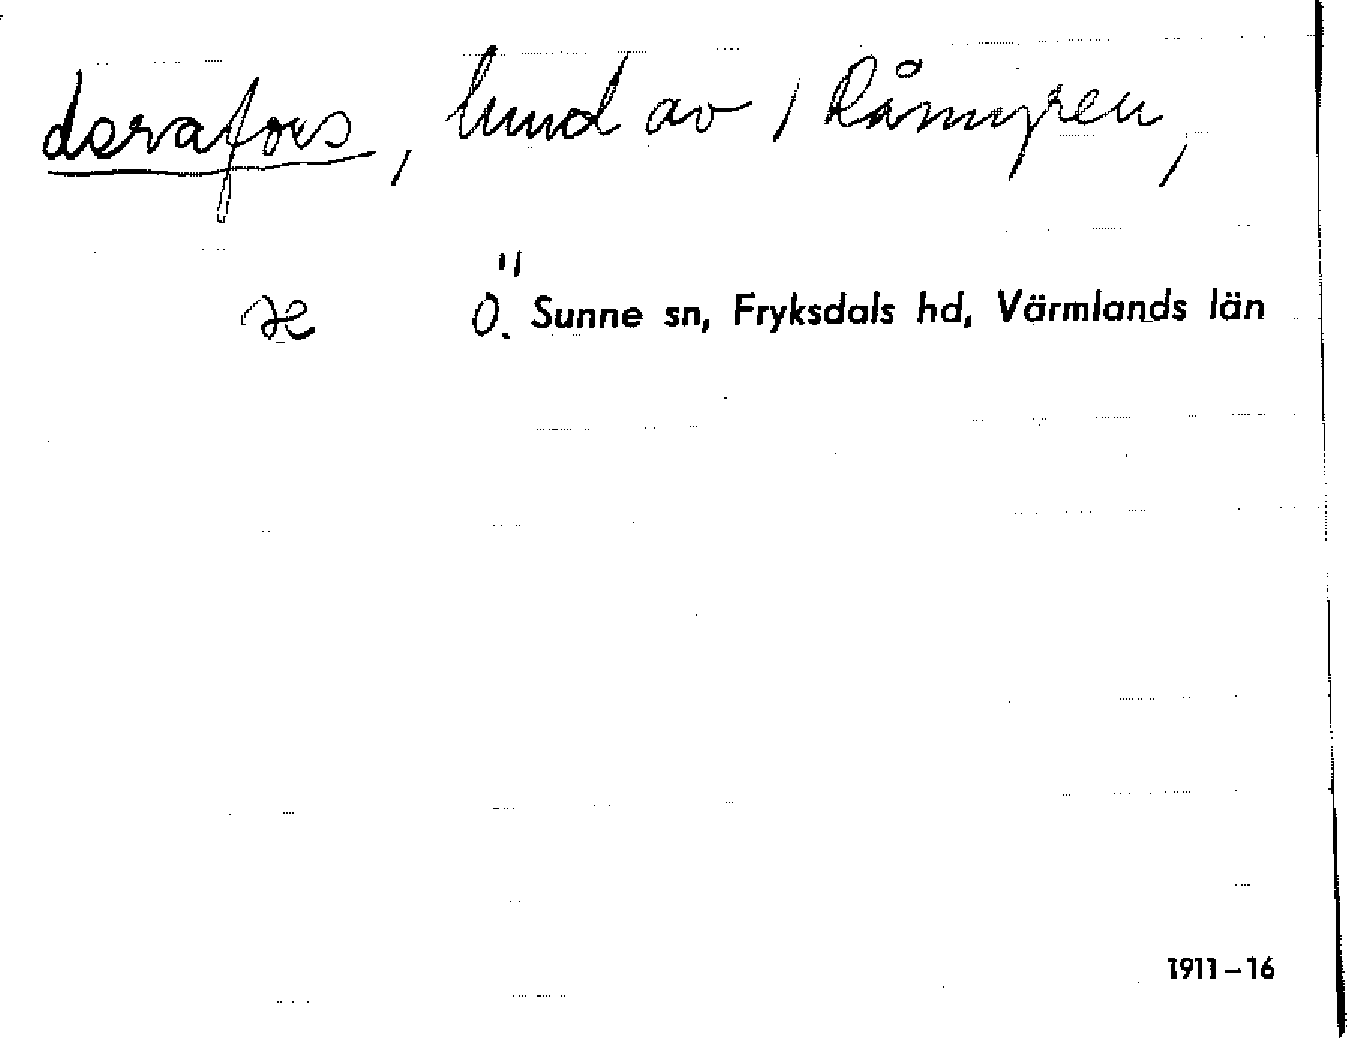 dɛrafɔrs, lund av / Råmyren,
æ Ö. Sunne sn, Fryksdals hd, Värmlands län
1911-16